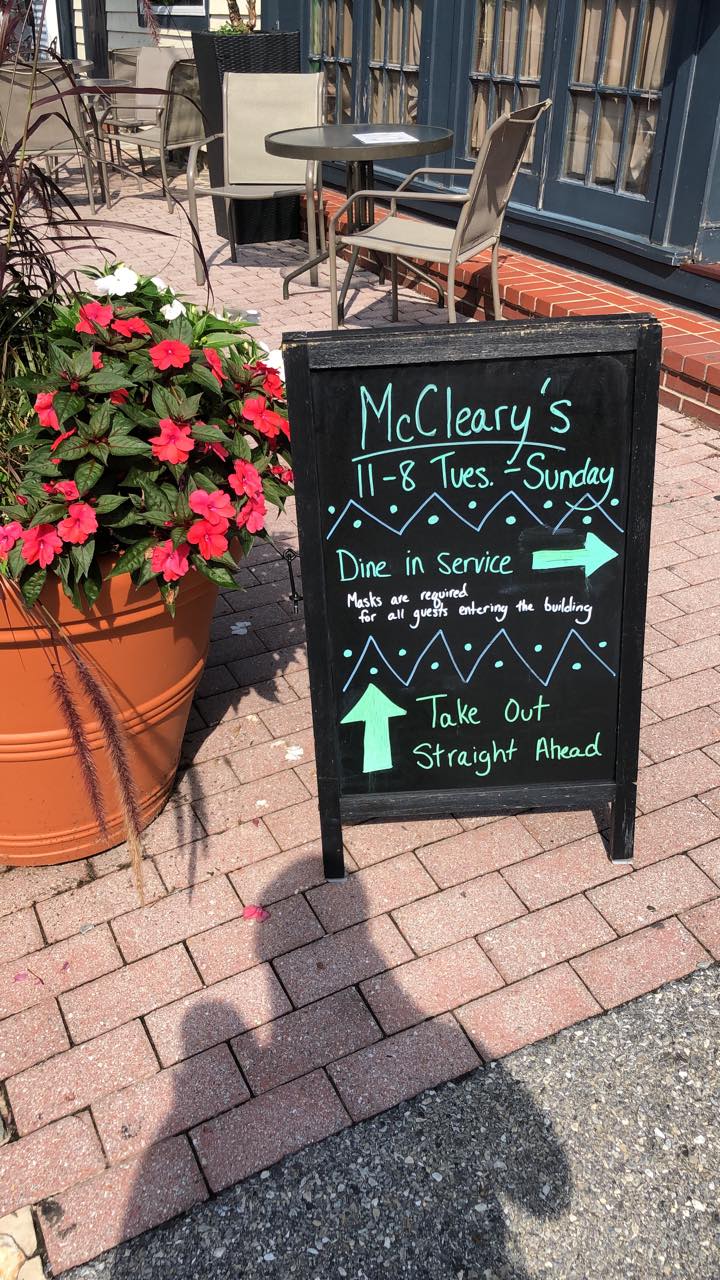 McCleary's
11-8 Tues. - Sunday
Dine in Service
Masks are required
for all guests entering the building
Take Out
Straight Ahead